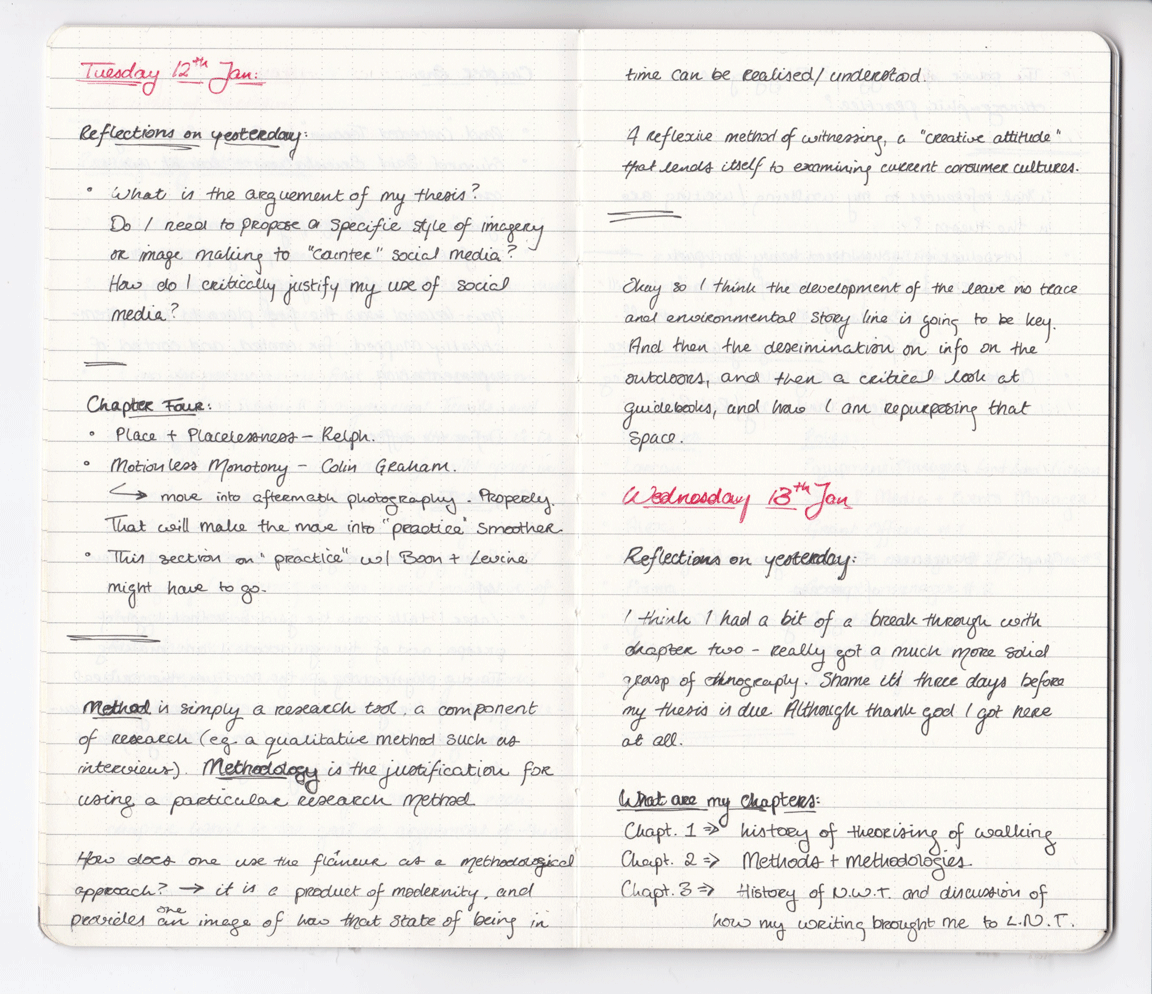 Tuesday 12th Jan:
Reflections on yesterday:
• What is the arguement of my thesis?
Do I need to propose a specific style of imagery
or image making to "counter" social media?
How do I critically justify my use of social
media?
Chapter Four:
• Place + Placelessness – Relph.
• Motionless Monotony – Colin Graham.
↳ move into aftermath photography. Properly.
That will make the move into "practice" smoother.
• This section on "practice" w/ Boon + Levine
might have to go.
Method is simply a research tool, a component
of research (eg. a qualitative method such as
interviews). Methodology is the justification for
using a particular research method.
How does one use the flâneur as a methodological
approach? → it is a product of modernity, and
provides one image of how that state of being in
time can be realised/understood.
A reflexive method of witnessing, a "creative attitude"
that lends itself to examining current consumer cultures.
Okay so I think the development of the leave no trace
and environmental story line is going to be key.
And then the desimination on info on the
outdoors, and then a critical look at
guidebooks, and how I am repurposing that
space.
Wednesday 13th Jan
Reflections on yesterday:
I think I had a bit of a break through with
chapter two – really got a much more solid
grasp of ethnography. Shame it's three days before
my thesis is due. Although thank god I got here
at all.
What are my chapters:
Chapt. 1 => history of theorising of walking
Chapt. 2 => Methods + methodologies
Chapt. 3 => History of N.W.T. and discussion of
how my writing brought me to L.N.T.